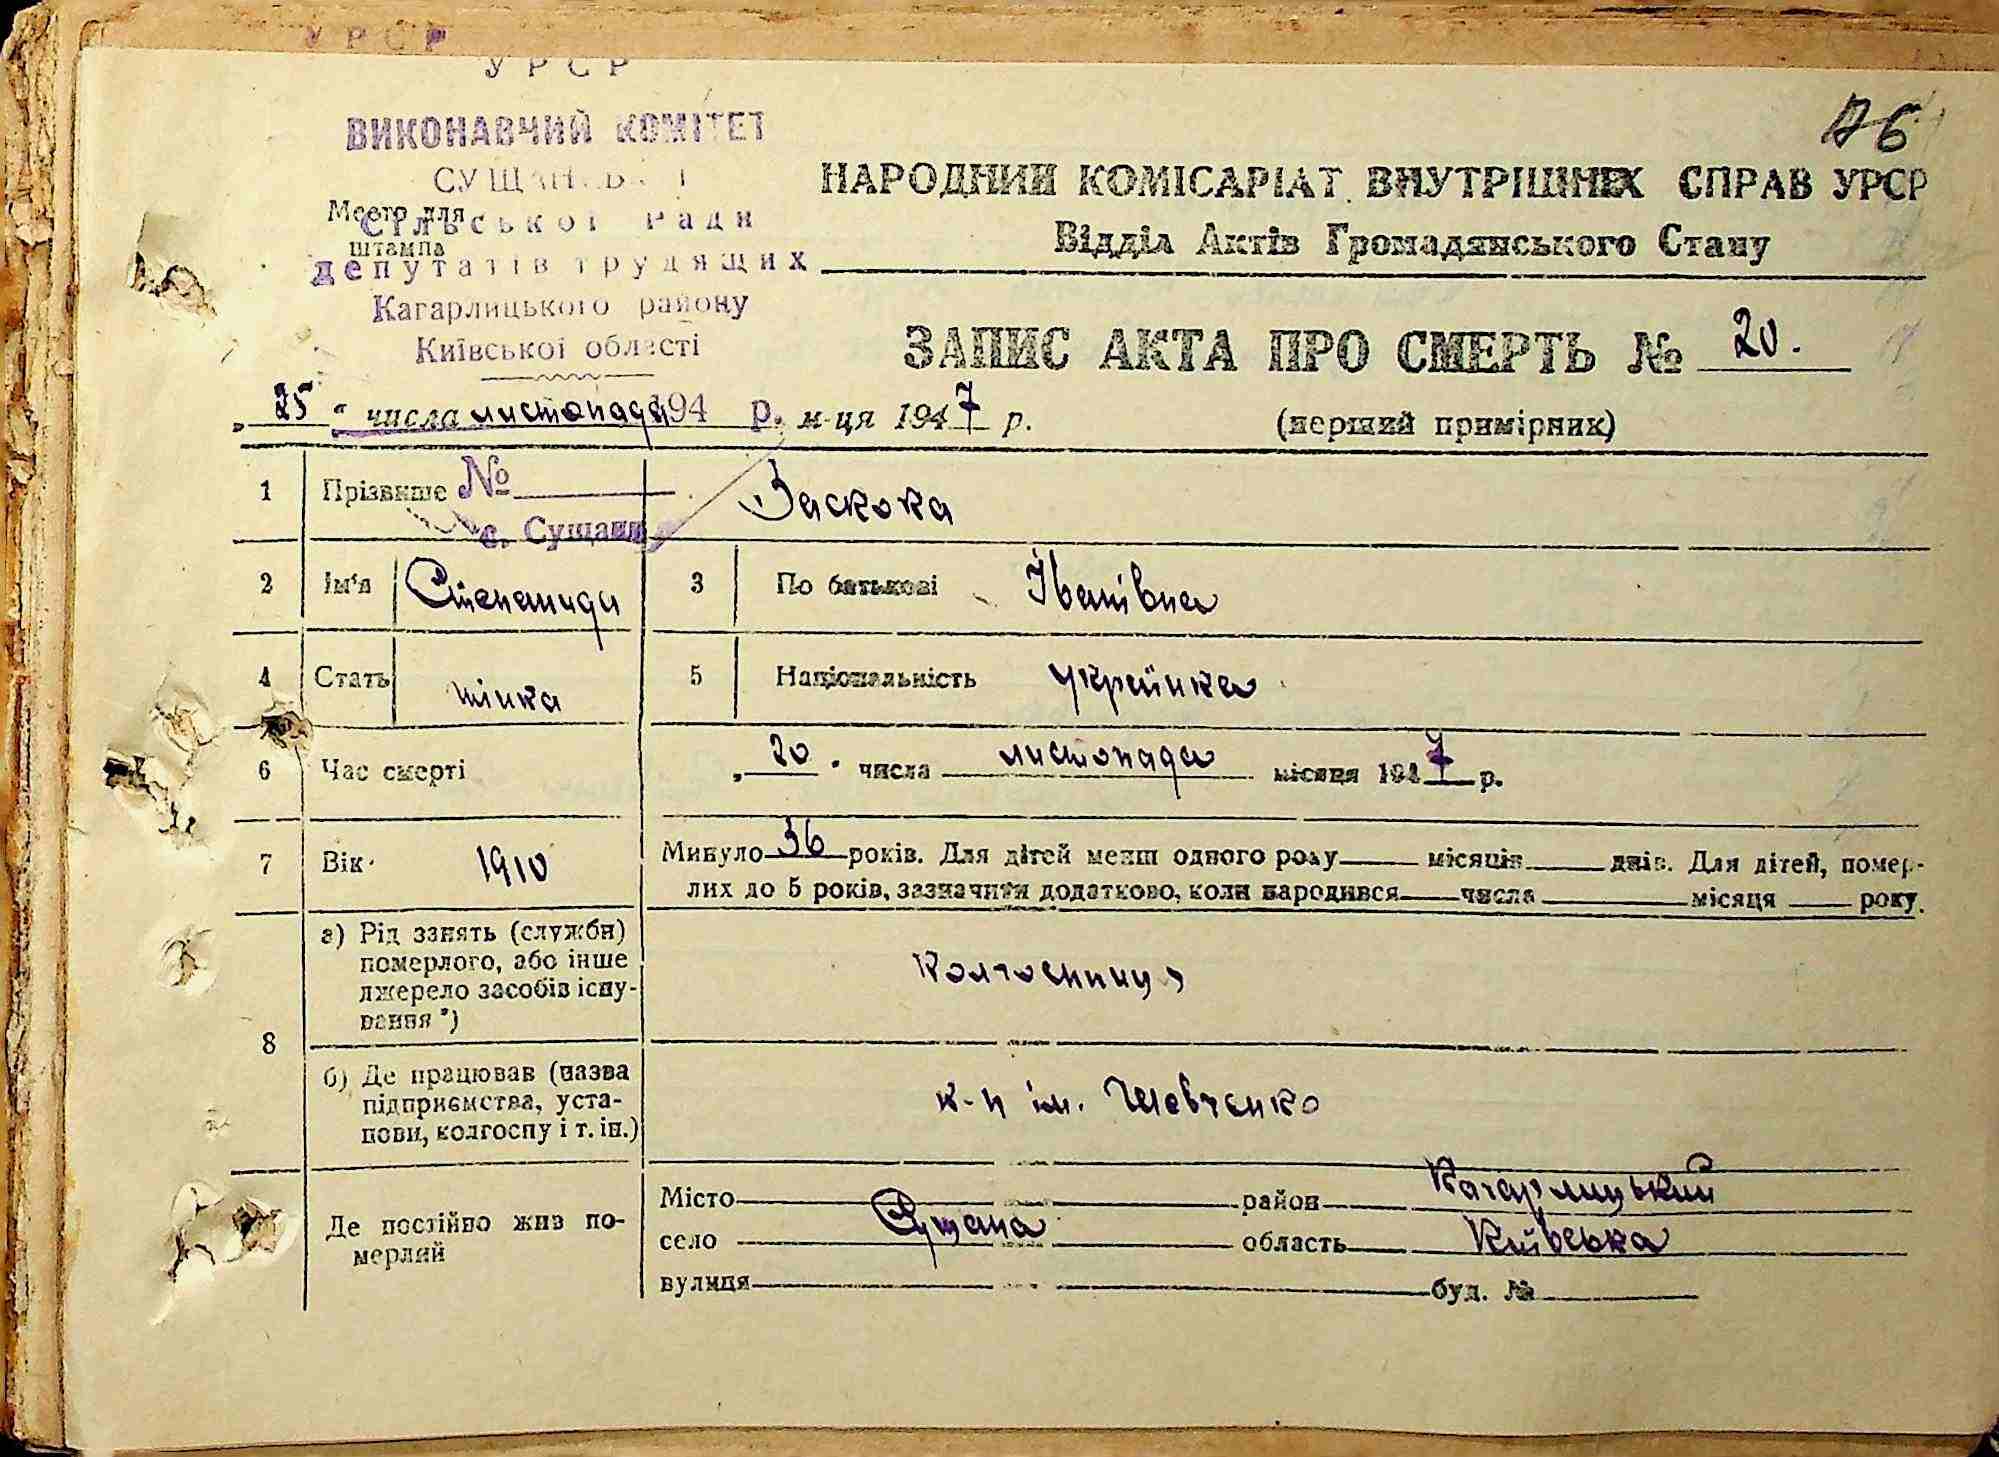 УРСР
УРСР
76
ВИКОНАВЧИЙ КОМІТЕТ
Місто для
Сільської Ради
штампа
депутатів трудящих
Кагарлицького району
Київської області
НАРОДНИЙ КОМІСАРІАТ ВНУТРІШНІХ СПРАВ УРСР
Відділ Актів Громадянського Стану
ЗАПИС АКТА ПРО СМЕРТЬ № 20.
„25" числа листопада 194 р. м-ця 1947 р.
(перший примірник)
1 Прізвище № Заскока
с. Сущани
2 Ім'я Степанида 3 По батькові Іванівна
4 Стать жінка 5 Національність українка
6 Час смерті „20" числа листопада місяця 1947 р.
7 Вік 1910 Минуло 36 років. Для дітей менш одного року місяців днів. Для дітей, помер-
лих до 5 років, зазначити додатково, коли народився числа місяця року.
8 а) Рід занять (служби)
померлого, або інше
джерело засобів існу-
вання *)
Колгоспниця
б) Де працював (назва
підприємства, уста-
нови, колгоспу і т. ін.)
к-п ім. Шевченко
Де постійно жив по-
мерлий
Місто район Кагарлицький
село Сущана область Київська
вулиця буд. №